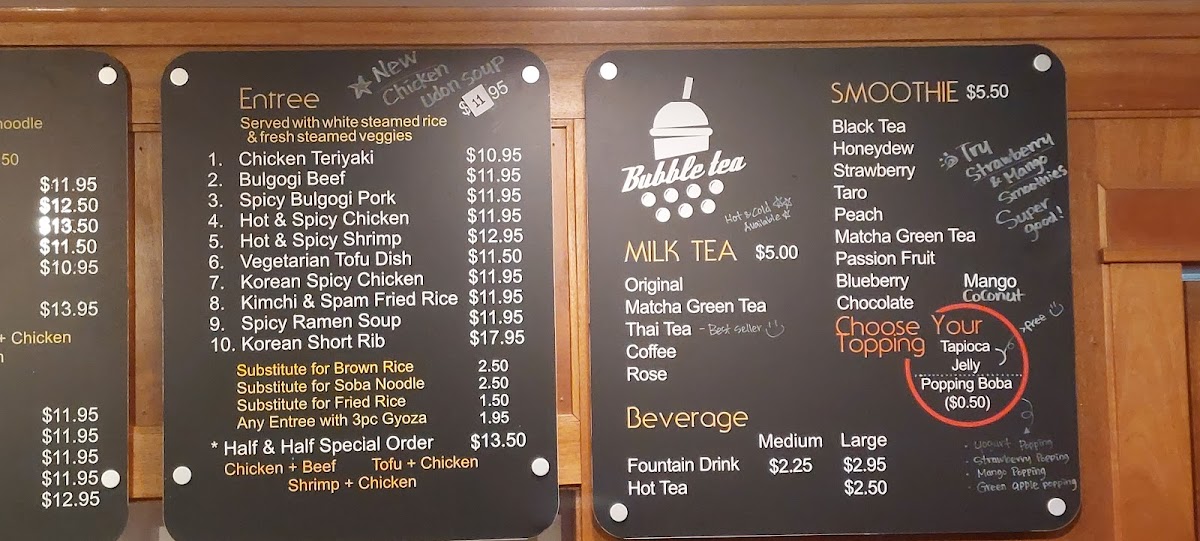 noodle
50
$11.95
$12.50
$13.50
$11.50
$10.95
$13.95
+ Chicken
$11.95
$11.95
$11.95
$11.95
$12.95
Entree
☆ New
Chicken
Udon Soup
$11.95
Served with white steamed rice
& fresh steamed veggies
1. Chicken Teriyaki $10.95
2. Bulgogi Beef $11.95
3. Spicy Bulgogi Pork $11.95
4. Hot & Spicy Chicken $11.95
5. Hot & Spicy Shrimp $12.95
6. Vegetarian Tofu Dish $11.50
7. Korean Spicy Chicken $11.95
8. Kimchi & Spam Fried Rice $11.95
9. Spicy Ramen Soup $11.95
10. Korean Short Rib $17.95
Substitute for Brown Rice 2.50
Substitute for Soba Noodle 2.50
Substitute for Fried Rice 1.50
Any Entree with 3pc Gyoza 1.95
* Half & Half Special Order $13.50
Chicken + Beef Tofu + Chicken
Shrimp + Chicken
Bubble tea
Hot & Cold
Available
MILK TEA $5.00
Original
Matcha Green Tea
Thai Tea - Best seller
Coffee
Rose
Beverage
Medium Large
Fountain Drink $2.25 $2.95
Hot Tea $2.50
SMOOTHIE $5.50
Black Tea
Honeydew
Strawberry
Taro
Peach
Matcha Green Tea
Passion Fruit
Blueberry Mango
Chocolate Coconut
Try
Strawberry
& Mango
Smoothies
Super
good!
Choose Your
Topping
Tapioca
Jelly
free
Popping Boba
($0.50)
- Yogurt Popping
- Strawberry Popping
- Mango Popping
- Green apple popping